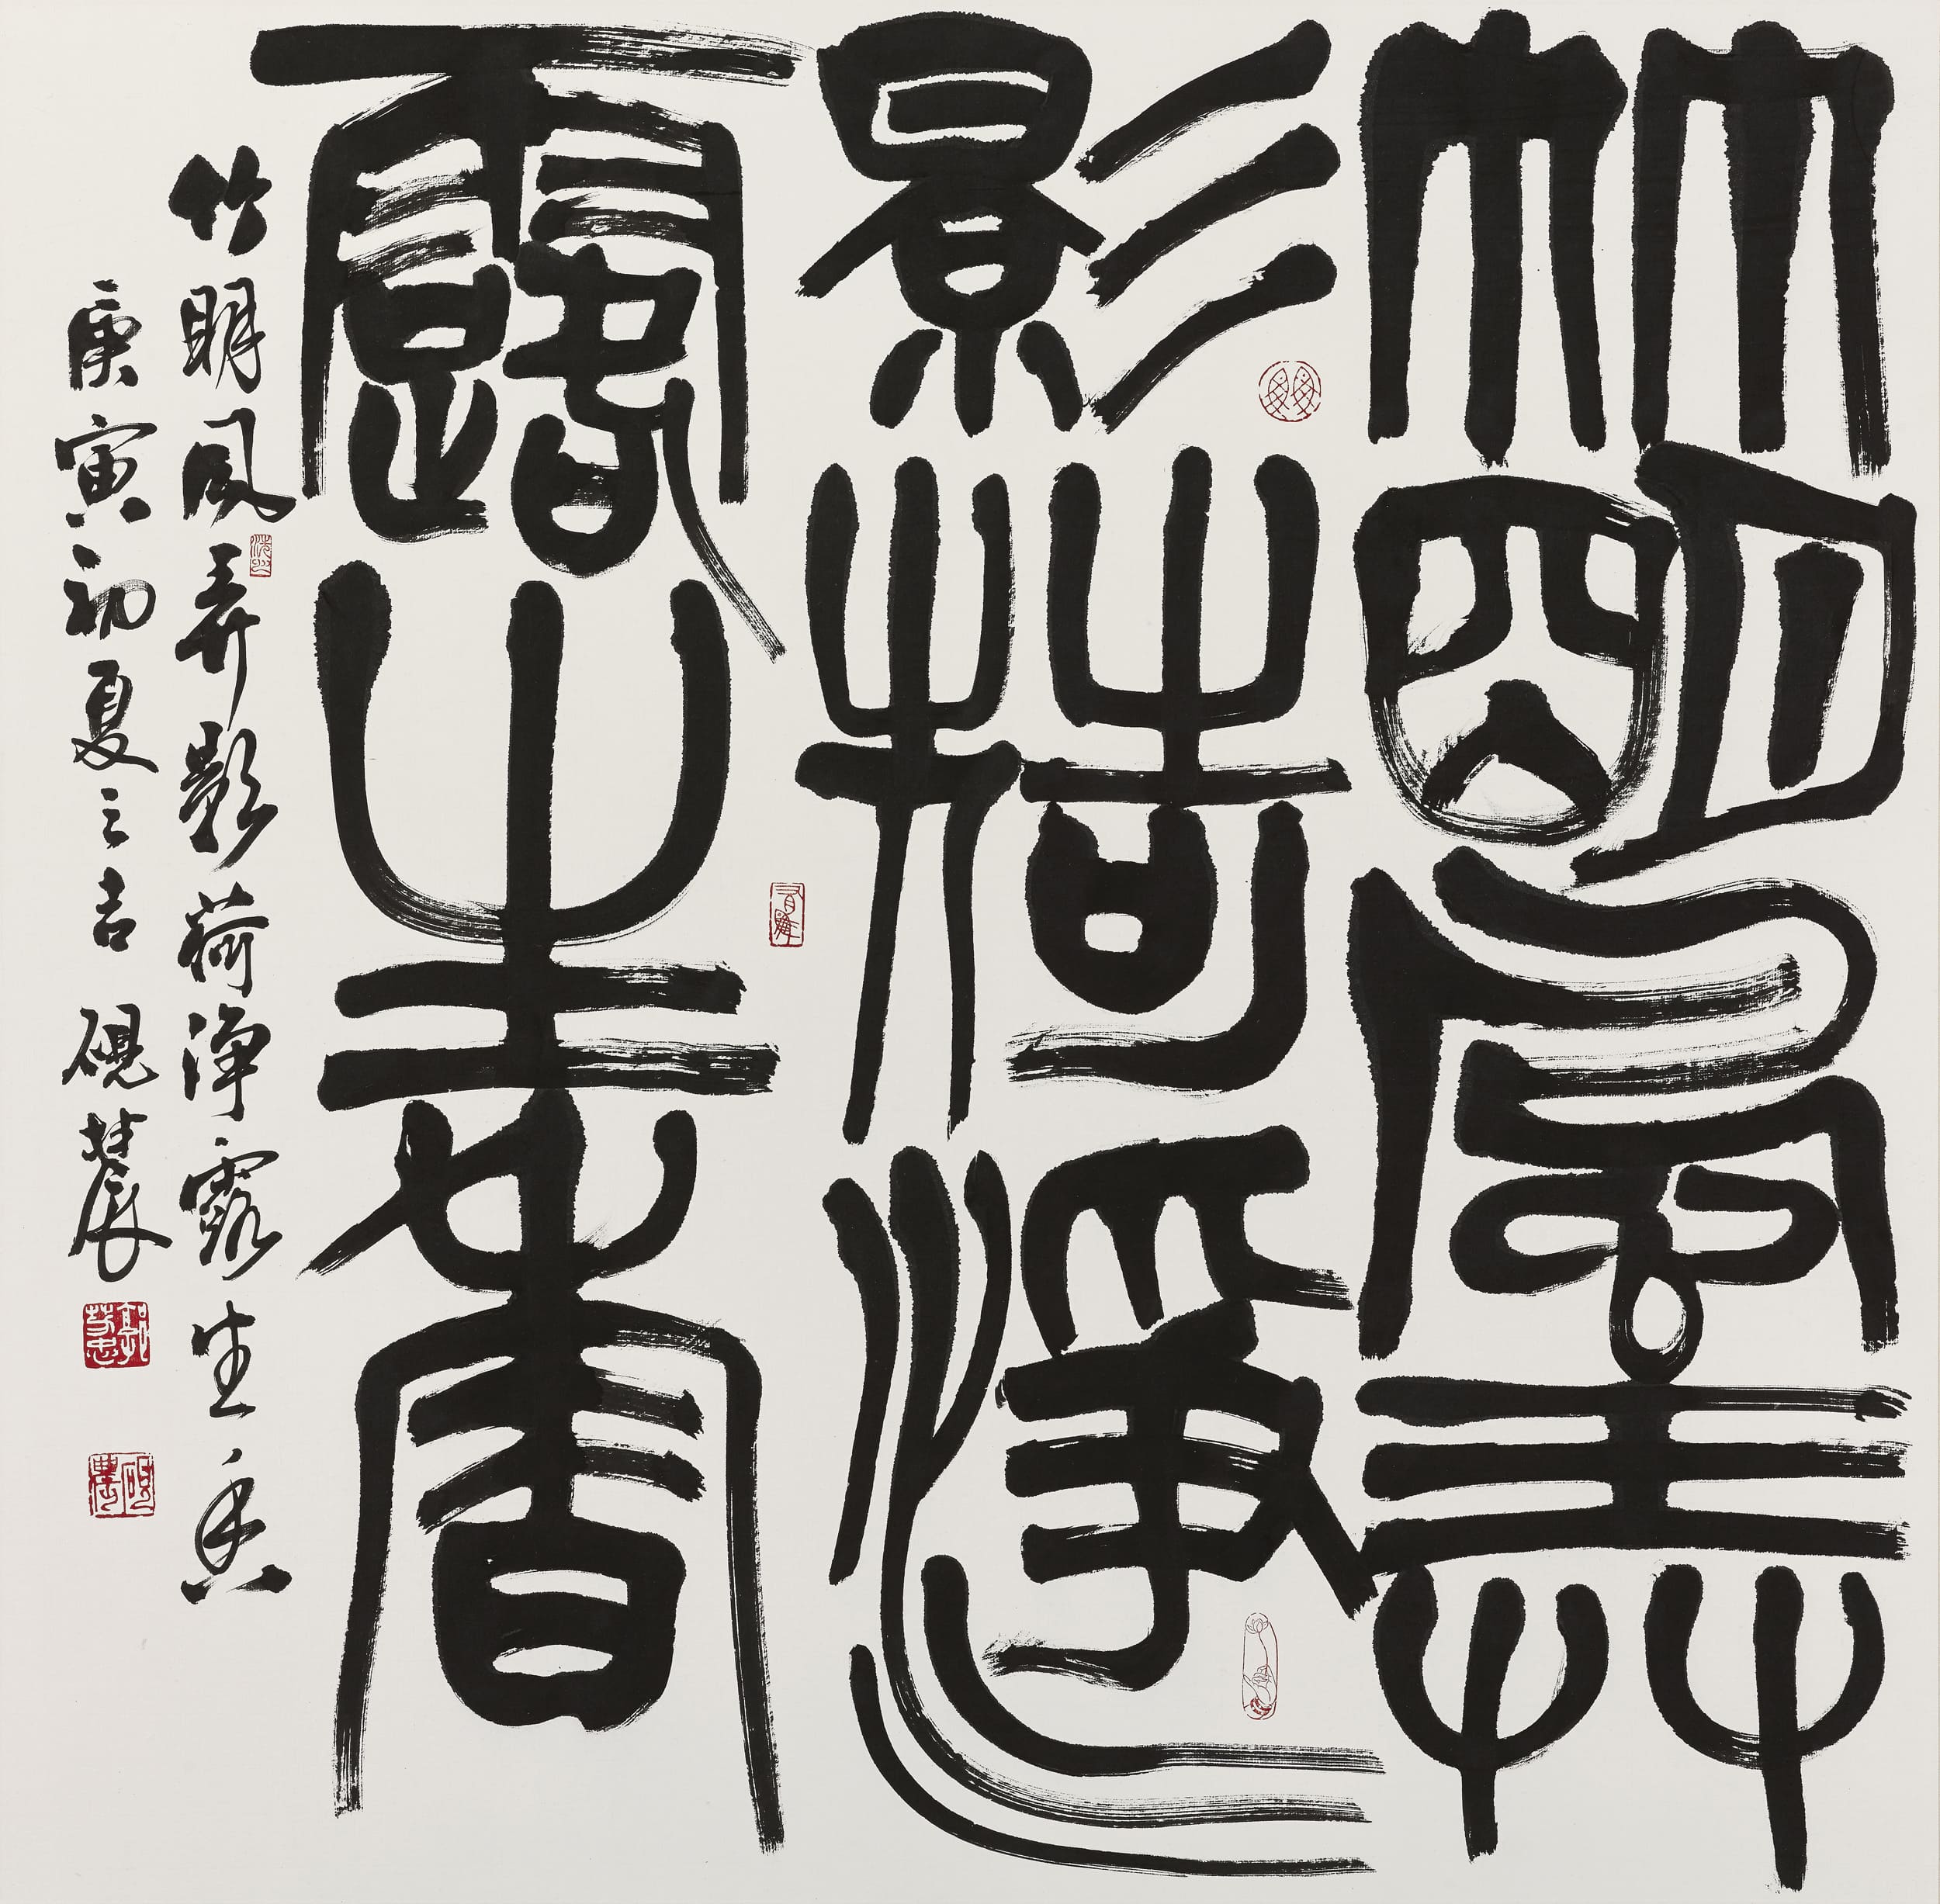 竹朙風弄
影荷淨
露生香
竹明風弄影荷淨露生香
庚寅初夏之吉硯農